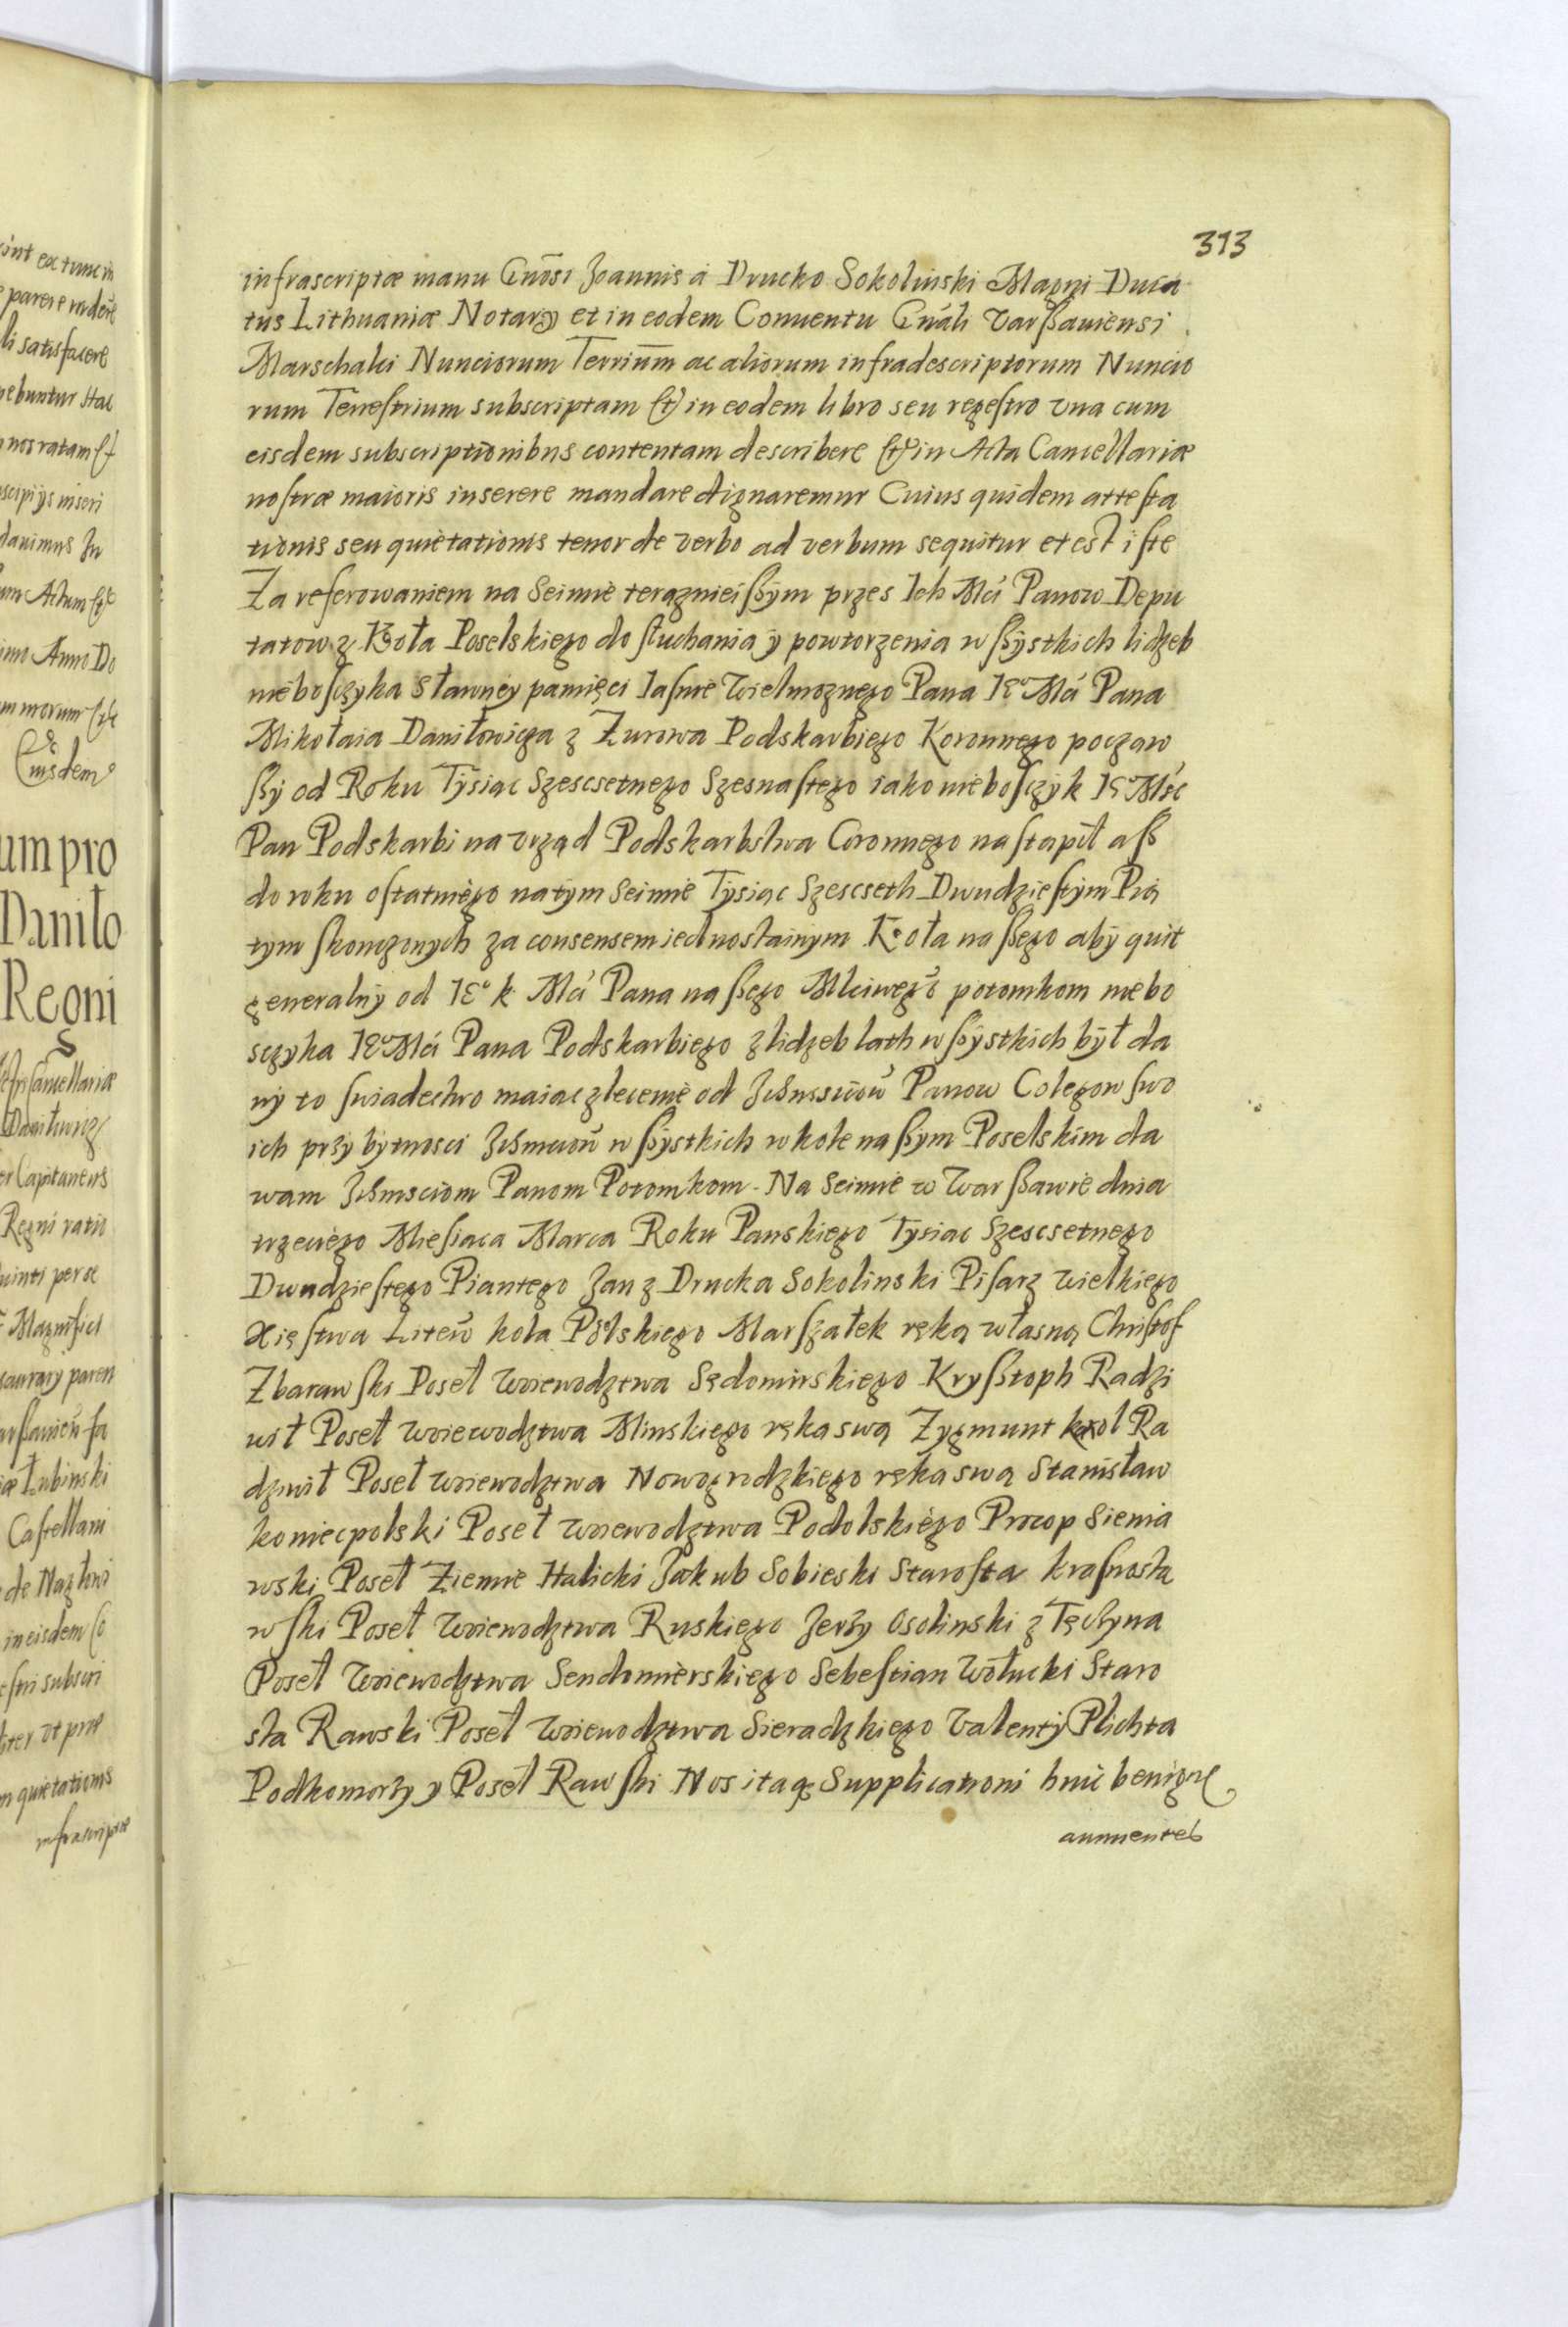 313
infrascriptæ manu Gnõsi Joannis á Drucko Sokolinski Magni Duca
tus Lithuaniæ Notarÿ et in eodem Conuentu Gnáli Varßauiensi
Marschalci Nunciorum Terrium̅ ac aliorum infradescriptorum Nuncio
rum Terrestrium subscriptam et in eodem libro seu regestro vna cum
eisdem subscriptionibus contentam describere et in Acta Cancellariæ
nostræ maioris inserere mandare dignaremur Cuius quidem attesta
tionis seu quietationis tenor de verbo ad verbum sequitur et est iste
Za referowaniem na Seimie teraznieißÿm przes Ich Mći Panow Depu
tatow z Koła Poselskiego do słuchania ÿ powtorzenia wßÿstkich lidzeb
niebosczyka sławneÿ pamięci Iasnie Wielmoznego Pana Ie° Mći Pana
Mikołaia Daniłowicza z Zurowa Podskarbiego Koronnego poczaw
ßÿ od Roku Tÿsiac Szescsetnego Szesnastego iako nieboscżÿk Ie° Mść
Pan Podskarbi na vrząd Podskarbstwa Coronnego nastąpił aß
do roku ostatniego na tÿm Seimie Tÿsiąc Szescseth Dwudziestÿm Pią
tym skonczonych za consensem iednostainym Koła naßego abÿ quit
generalnÿ od Ie° k Mći Pana naßego Mlciweg° potomkom niebo
sczyka Ie° Mći Pana Podskarbiego z lidzeb lath wßÿstkich bÿł da
nÿ to swiadectwo maiac zlecenie od Ichmsciow Panow Colegow swo
ich przÿ bÿtnosci Ichmciow wßÿstkich w kole naßym Poselskim da
wam Ichmsciom Panom Potomkom. Na Seimie w Warßawie dnia
trzeciego Miesiaca Marca Roku Panskiego Tÿsiac Szescsetnego
Dwudziestego Piantego Jan z Drucka Sokolinski Pisarz Wielkiego
Xięstwa Litew̃ koła Polskiego Marszałek ręką własną Christof
Zbarawski Poseł Woiewodztwa Sędomirskiego Kryßtoph Radzi
wił Poseł Woiewodztwa Minskiego ręka swą Zygmunt karol Ra
dziwił Poseł Woiewodztwa Nowogrodzkiego ręka swą Stanisław
koniecpolski Poseł Woiewodztwa Podolskiego Procop Sienia
wski Poseł Ziemie Halicki Jakub Sobieski Starosta krasnosta
wski Poseł Woiewodztwa Ruskiego Jerży Osolinski z Tęcżyna
Poseł Woiewodztwa Sendomierskiego Sebestian Wołucki Staro
sta Rawski Poseł Woiewodztwa Sieradzkiego Valentÿ Plichta
Podkomorży y Poseł Rawski Nos itaq Supplicationi huic benigne
annuentes